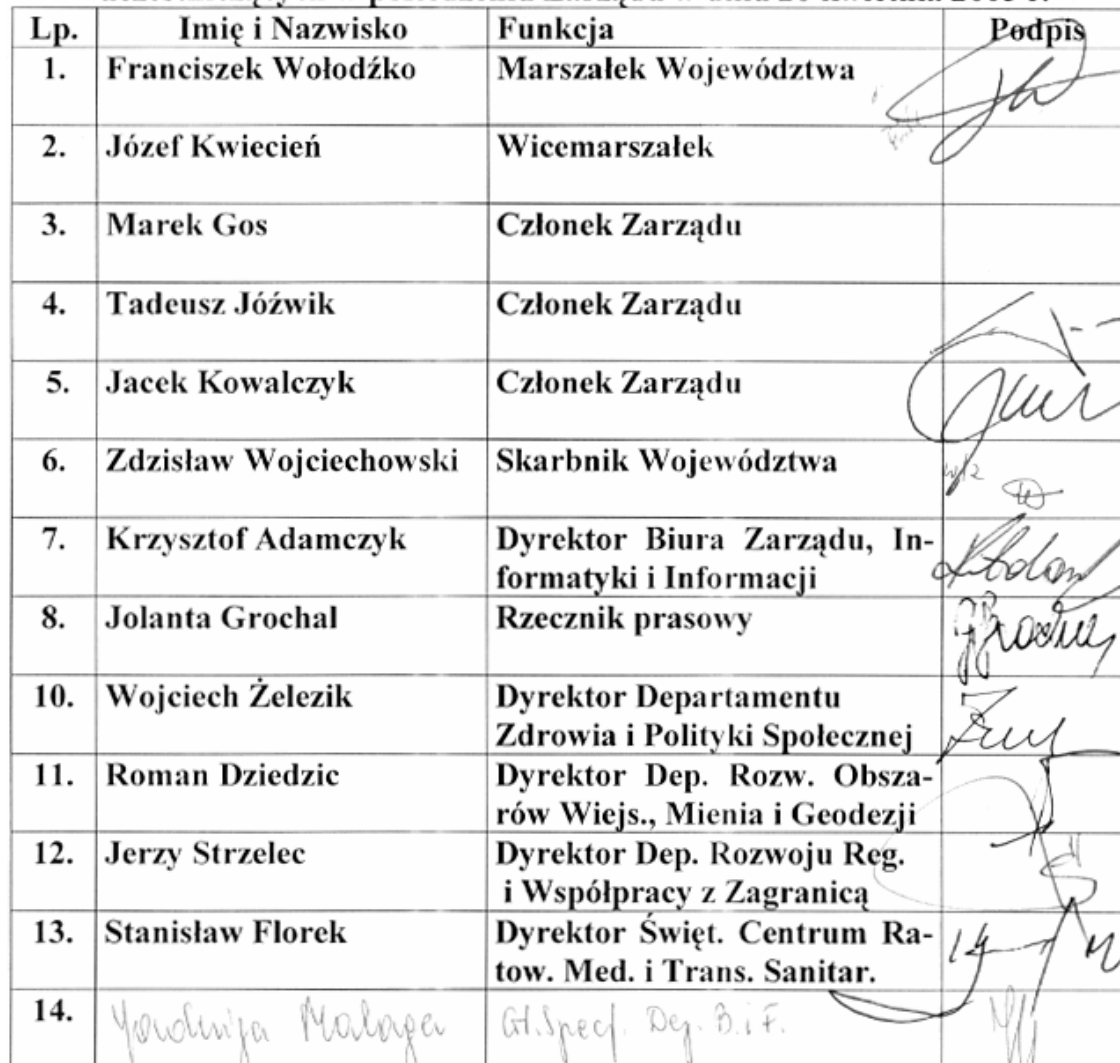 Lp. Imię i Nazwisko Funkcja Podpis
1. Franciszek Wołodźko Marszałek Województwa
2. Józef Kwiecień Wicemarszałek
3. Marek Gos Członek Zarządu
4. Tadeusz Jóźwik Członek Zarządu
5. Jacek Kowalczyk Członek Zarządu
6. Zdzisław Wojciechowski Skarbnik Województwa
7. Krzysztof Adamczyk Dyrektor Biura Zarządu, In-
formatyki i Informacji
8. Jolanta Grochal Rzecznik prasowy
10. Wojciech Żelezik Dyrektor Departamentu
Zdrowia i Polityki Społecznej
11. Roman Dziedzic Dyrektor Dep. Rozw. Obsza-
rów Wiejs., Mienia i Geodezji
12. Jerzy Strzelec Dyrektor Dep. Rozwoju Reg.
i Współpracy z Zagranicą
13. Stanisław Florek Dyrektor Święt. Centrum Ra-
tow. Med. i Trans. Sanitar.
14. Gł. Specj. Dep. B. i F.